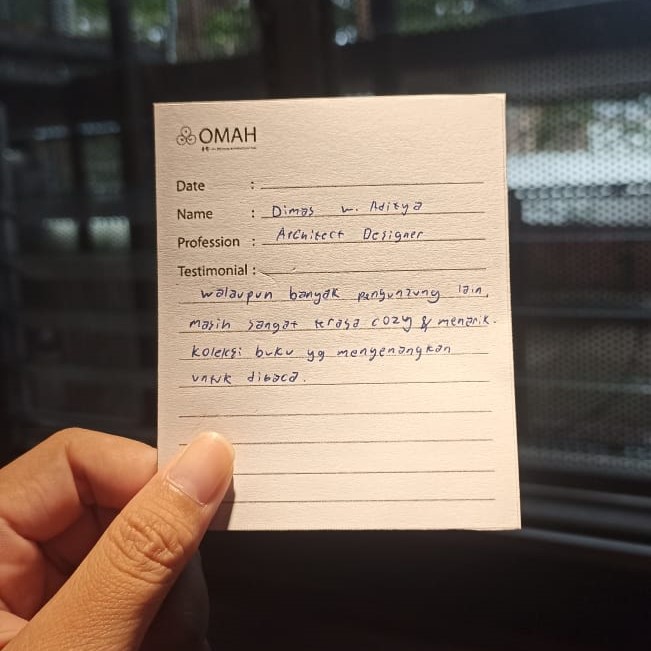 OMAH
Date :
Name : Dimas W. Aditya
Profession : Architect Designer
Testimonial :
walaupun banyak pengunjung lain,
masih sangat terasa cozy & menarik.
koleksi buku yg menyenangkan
untuk dibaca.